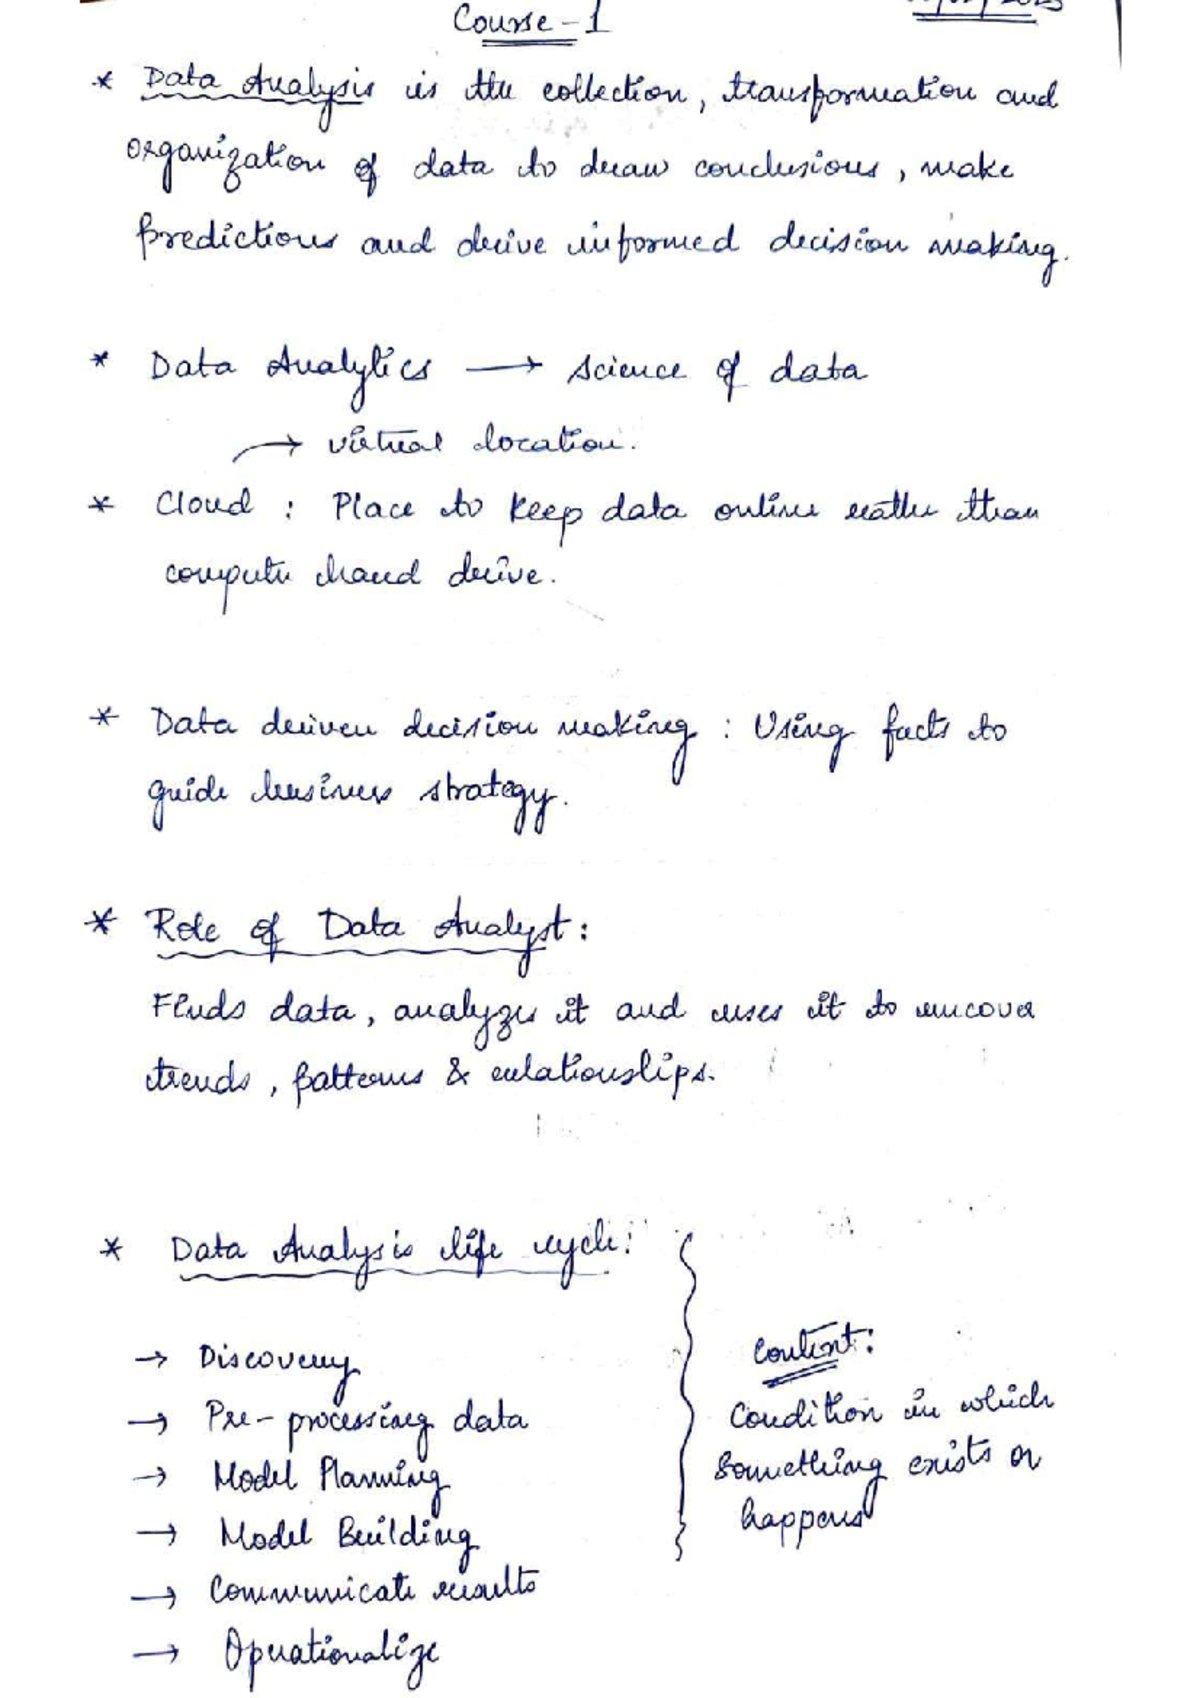 Course - 1
* Data Analysis is the collection, transformation and
organization of data to draw conclusions, make
predictions and derive informed decision making.
* Data Analytics → science of data
→ virtual location.
* Cloud : Place to keep data online rather than
computer hard drive.
* Data driven decision making : Using facts to
guide business strategy.
* Role of Data Analyst :
Finds data, analyzes it and uses it to uncover
trends, patterns & relationships.
* Data Analysis life cycle :
→ Discovery
→ Pre-processing data
→ Model Planning
→ Model Building
→ Communicate results
→ Operationalize
Context :
Condition in which
something exists or
happens